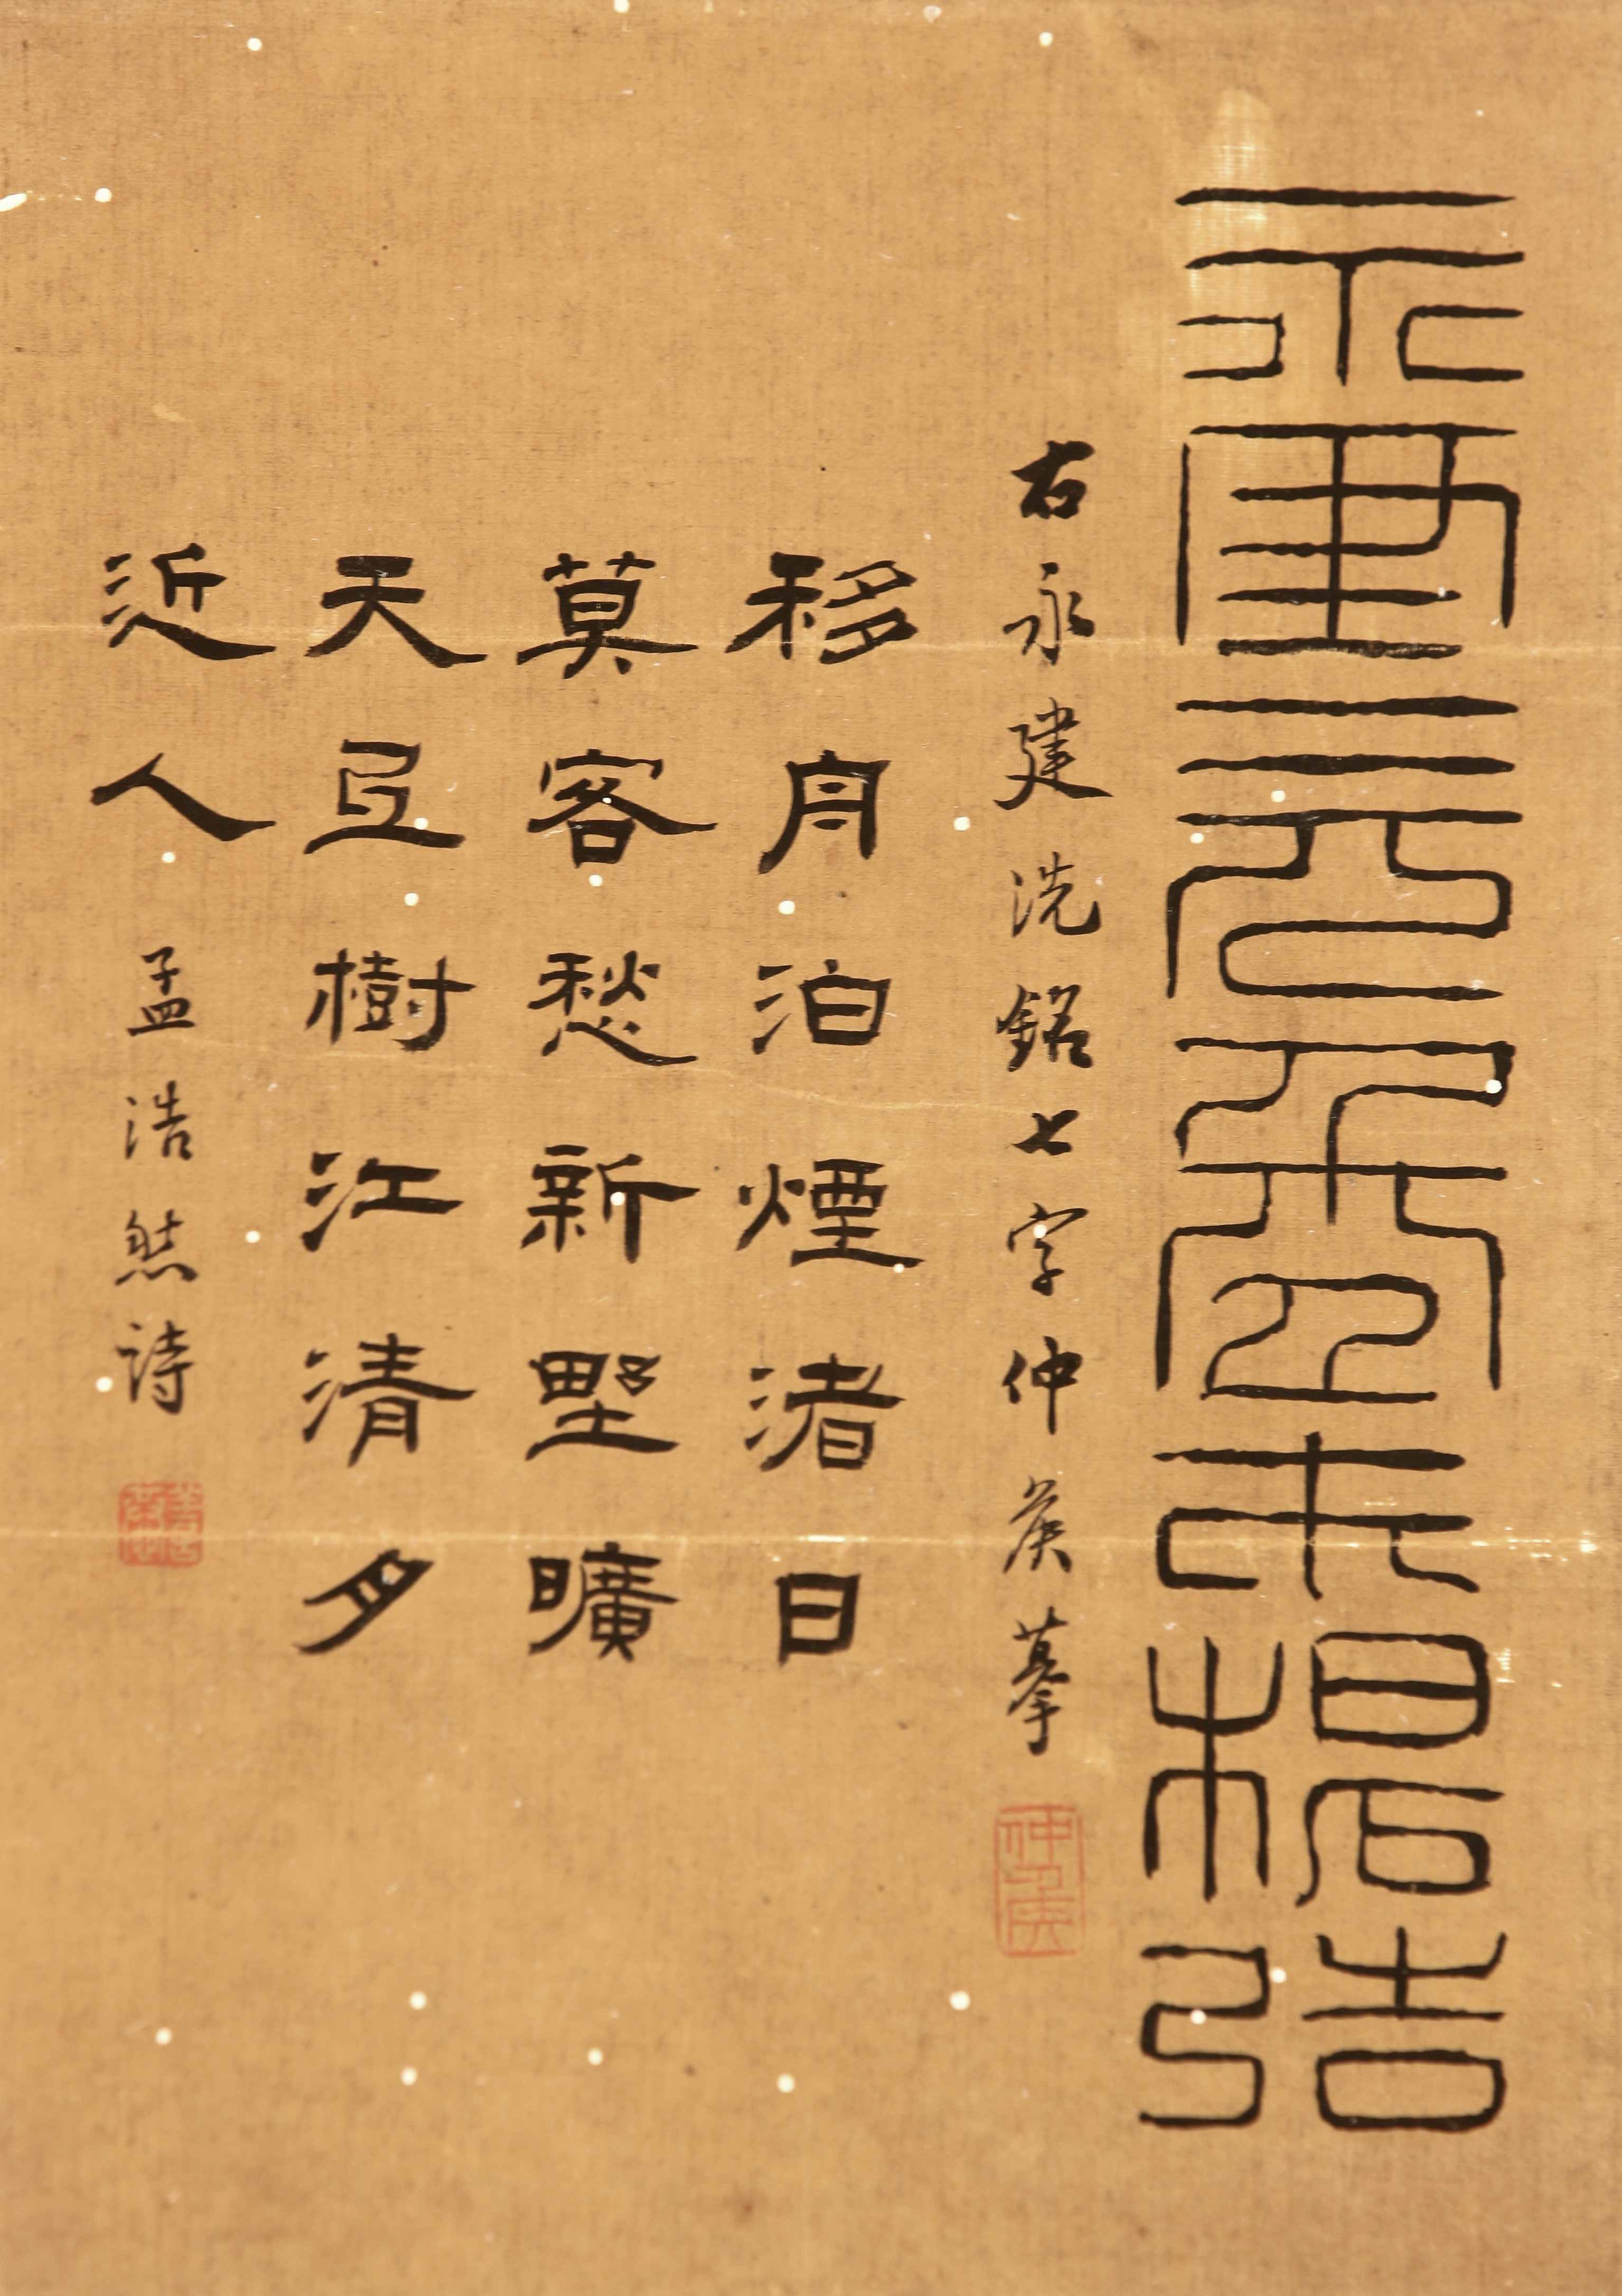 永建元年朱提造
右永建洗銘七字仲矦摹
仲矦
移舟泊煙渚日
莫客愁新野曠
天氐樹江清月
近人
孟浩然詩